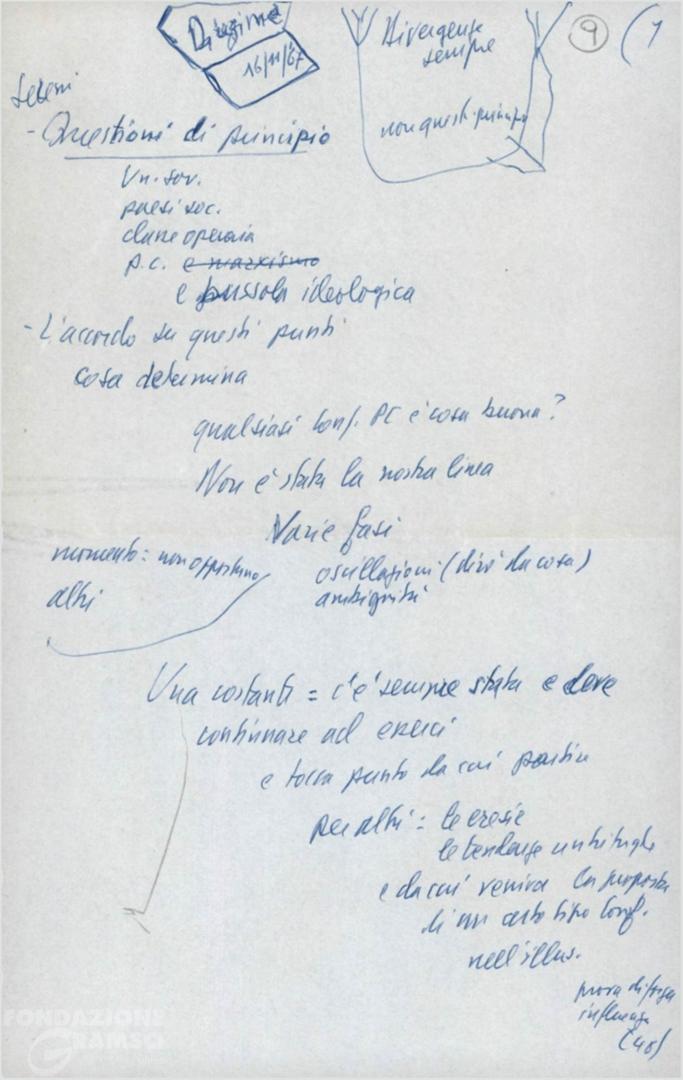 Direzione
16/11/67
Divergenze
sempre
non questi principi
9
(1
- Questioni di principio
Un. sov.
paesi soc.
classe operaia
p.c. e marxismo
e bussola ideologica
- L'accordo su questi punti
cosa determina
qualsiasi conf. PC è cosa buona?
Non è stata la nostra linea
Varie fasi
momento: non opportuno
oscillazioni (dire da cosa)
altri
ambiguità
Una costante = c'è sempre stata e deve
continuare ad esserci
e tocca punto da cui partire
per altri = le eresie
le tendenze centrifughe
e da cui veniva la proposta
di un certo tipo conf.
nell'illus.
prova di forza
influenza
FONDAZIONE
GRAMSCI